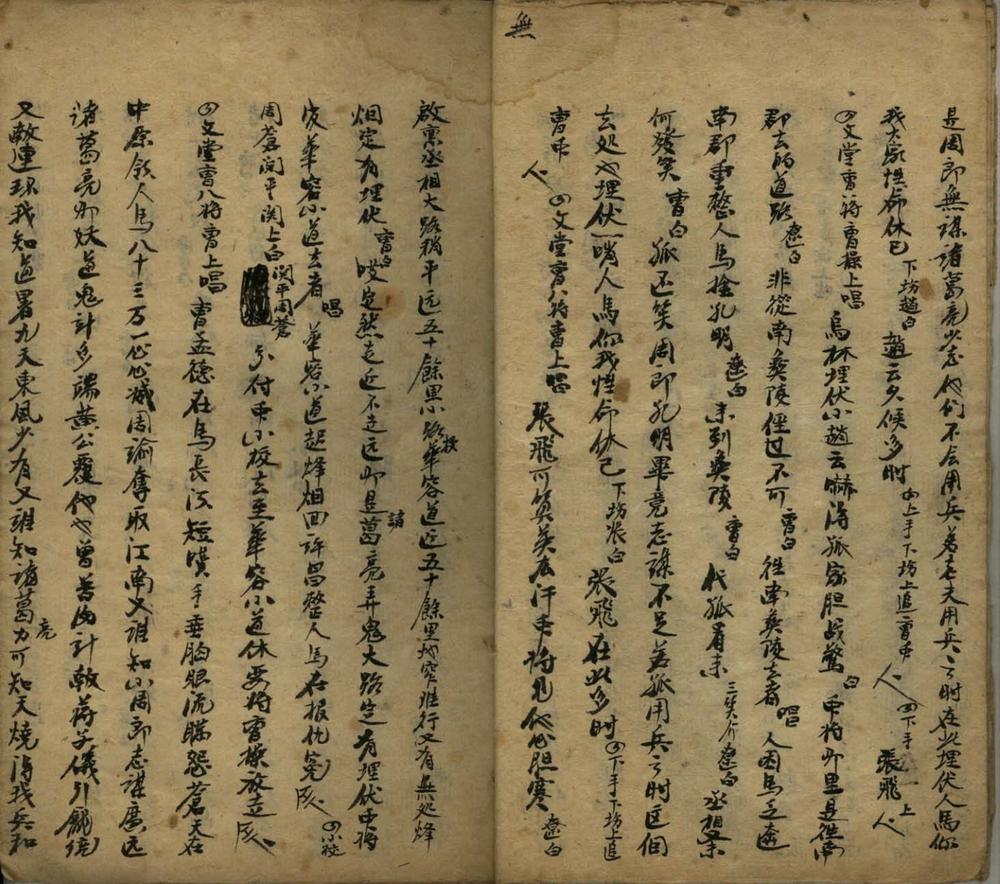 無
是周郎無謀諸葛亮少志他們不会用兵若老夫用兵之时在此埋伏人馬你
我大家性命休已 下坊趙白 趙云久候多时 四上手下坊上追曹下 人 四下手上 張飛 人
四文堂曹八将曹操上唱 烏林埋伏小趙云嚇得孤家胆战驚 白 中将那里是往南
郡去的道路 遼白 非從南彝陵徑过不可 曹白 往南彝陵去者 唱 人困馬乏奔
南郡重整人馬捡孔明 遼白 来到彝陵 曹白 代孤看来 三笑介遼白 丞相又来
何發笑 曹白 孤还笑周郎孔明畢竟志謀不足若孤用兵之时這個
去処也埋伏一哨人馬你我性命休已 下坊張白 張飛在此多时 四下手下坊上追
曹下 人 四文堂曹八将曹上唱 張飛可算英 汗中将見他心胆寒 遼白
啟禀丞相大路稍平远五十餘里小路投華容道近五十餘里地窄难行又有無処烽
烟定有埋伏 曹白 然走近不走远此是諸葛亮弄鬼大路必有埋伏中将
促華容小道去者 唱 華容小道起烽烟回許昌整人馬在报仇冤 灰 四小校
周蒼関平関上白 関平周蒼 分付中小校去至華容小道休要将曹操放走 灰
四文堂曹八将曹上唱 曹孟德在馬長江短嘆手垂胸眼流瞞怨蒼天在
中原領人馬八十三万一心心滅周瑜奪取江南又誰知小周郎志謀廣远
諸葛亮那妖道鬼計多端黄公覆他也曾苦肉計献蒋子儀引龐統
又献連环我知道署九天東風少有又誰知諸葛亮力可知天燒得我兵和